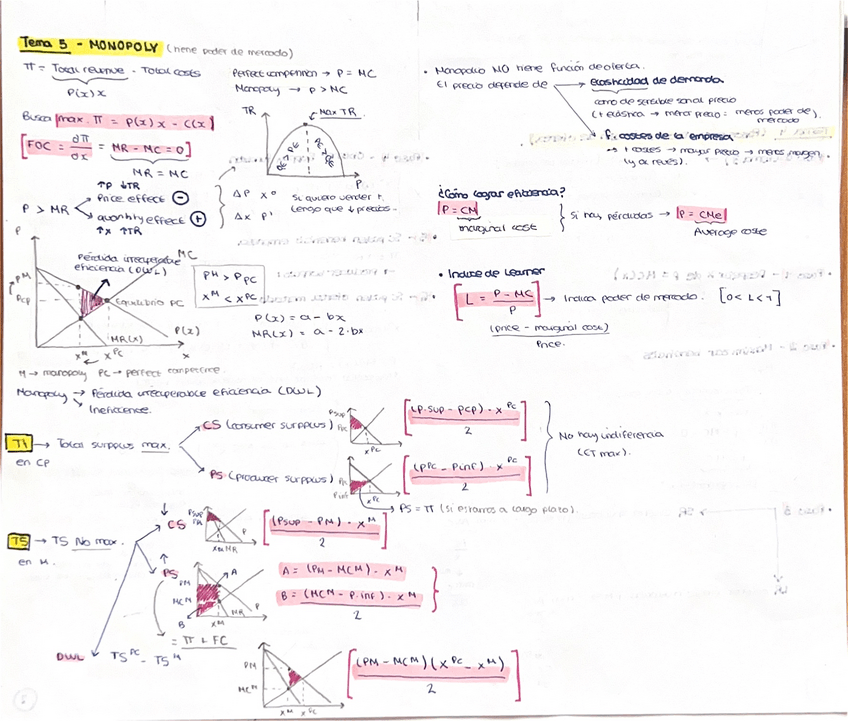 Tema 5 - MONOPOLY (tiene poder de mercado)
π = Total revenue - Total costs
P(x)x
Perfect competition → P = MC
Monopoly → P > MC
Busca max. π = P(x)x - C(x)
FOC = ∂π/∂x = MR - MC = 0
MR = MC
TR
Max TR.
P
P > MR
↑P ↓TR
Price effect ⊖
quantity effect ⊕
↑x ↑TR
ΔP x⁰
Δx P¹
Si quiero vender ↑
tengo que ↓ precios.
P
Pérdida irrecuperable
eficiencia (DWL)
MC
PM
PCP
Equilibrio PC
MR(x)
P(x)
xM
xPC
x
PM > PPC
xM < xPC
P(x) = a - bx
MR(x) = a - 2·bx
M → monopoly PC → perfect competitive.
Monopoly → Pérdida irrecuperable eficiencia (DWL)
Inefficience.
· Monopolio NO tiene función de oferta.
El precio depende de
elasticidad de demanda
como de sensible son al precio
(+ elástica → menor precio = menos poder de
mercado)
· f. costes de la empresa
→ ↑ costes → mayor precio → menos margen
(y al revés).
¿Cómo lograr eficiencia?
P = CM
marginal cost
Si hay pérdidas → P = CMe
Average coste
· Indice de Learner
L = P - MC / P → Indica poder de mercado. [0 < L < 1]
(price - marginal cost)
Price.
T1 → Total surpluss max.
en CP
CS (consumer surpluss)
Psup
PPC
xPC
(P.sup - PCP) · xPC / 2
PS (producer surpluss)
Pinf
xPC
(PPC - Pinf) · xPC / 2
No hay indiferencia
(ET max).
PS = π (si estamos a largo plazo).
T5 → TS No max.
en M.
↓
CS
Psup
PM
xM MR
P
(Psup - PM) · xM / 2
↑
PS
PM
MCM
A
B
xM
MR
P
A = (PM - MCM) · xM
B = (MCM - P.inf) · xM / 2
= π + FC
DWL
TSPC - TSM
PM
MCM
xM
xPC
(PM - MCM)(xPC - xM) / 2